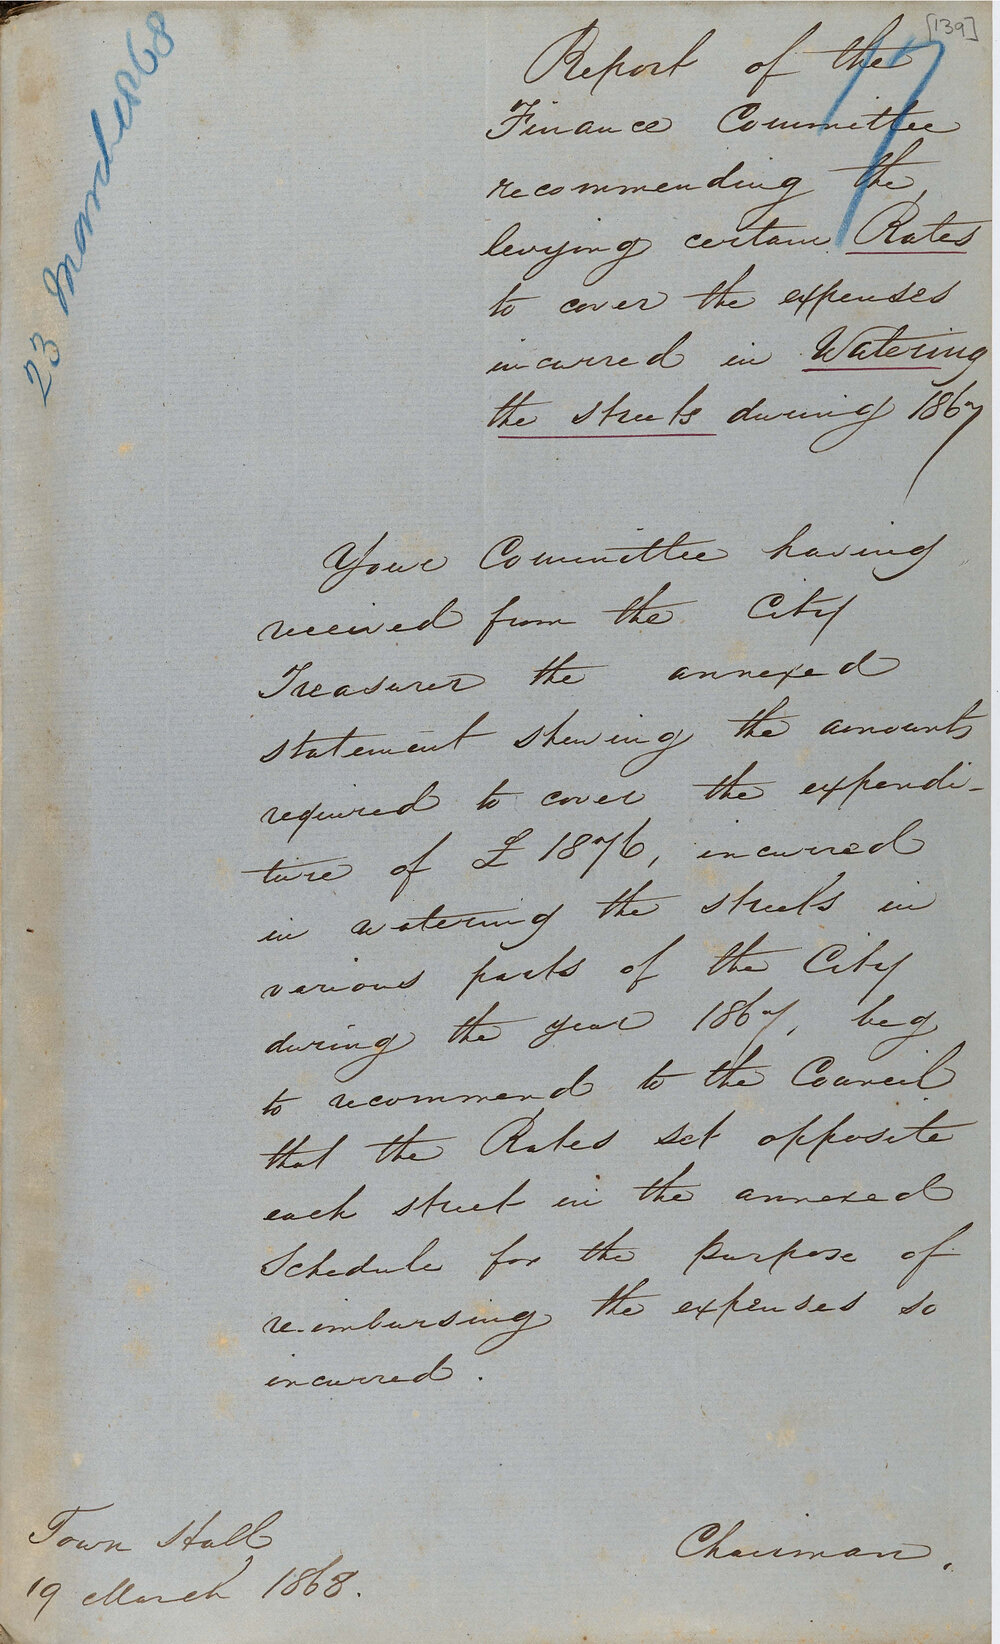 [139]
17
23 March 1868
Report of the
Finance Committee
recommending the
levying certain Rates
to cover the expenses
incurred in Watering
the streets during 1867
Your Committee having
received from the City
Treasurer the annexed
statement shewing the amounts
required to cover the expendi-
ture of £ 1876, incurred
in watering the streets in
various parts of the City
during the year 1867, beg
to recommend to the Council
that the Rates set opposite
each street in the annexed
Schedule for the purpose of
re-imbursing the expenses so
incurred.
Chairman.
Town Hall
19 March 1868.